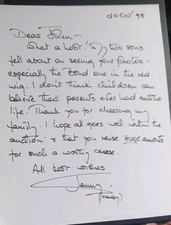 Dear John -
What a hoot! My two sons
fell about on seeing your photos -
especially the Bond one in the red
wig. I don't think children can
believe their parents ever had another
life. Thank you for cheering my
family. I hope all goes well with the
auction - & that you raise
for such a worthy cause.
All best wishes